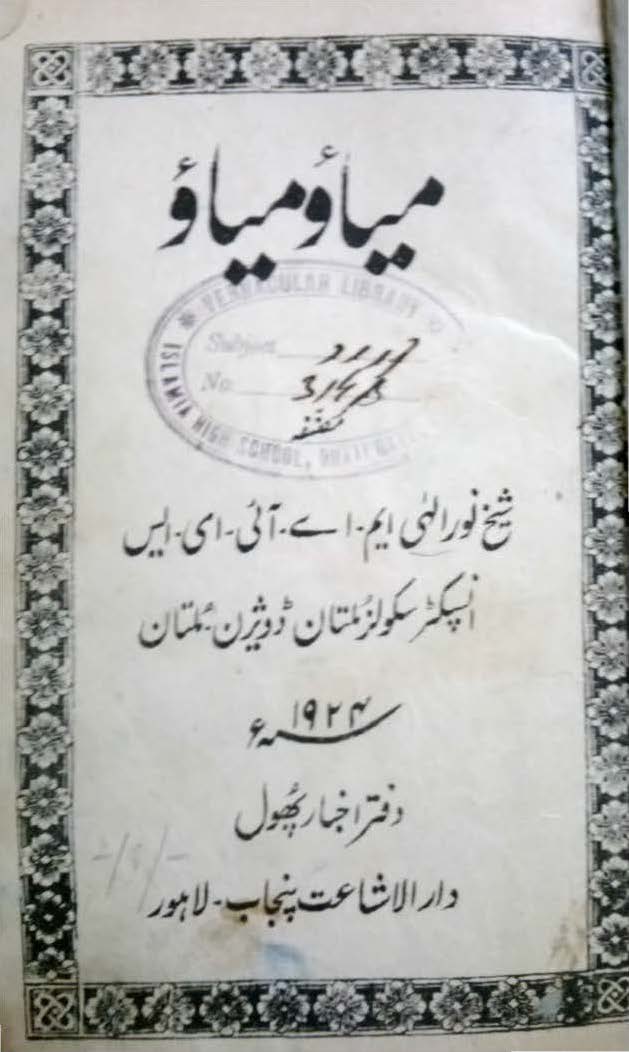 میاؤ میاؤ
VERNACULAR LIBRARY
Subject
No. 3193
ISLAMIA HIGH SCHOOL,
مصنفہ
شیخ نور الٰہی ایم-اے-آئی-ای-ایس
انسپکٹر سکولز مُلتان ڈویژن-مُلتان
۱۹۲۴ء
دفتر اخبار پھُول
دار الاشاعت پنجاب-لاہور